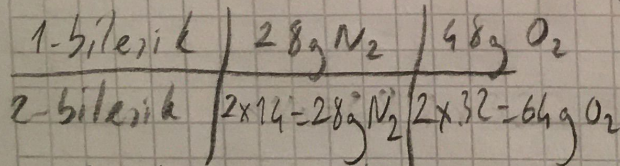 1-bileşik | 28g N₂ | 48g O₂
2-bileşik | 2x14=28g N₂ | 2x32=64g O₂